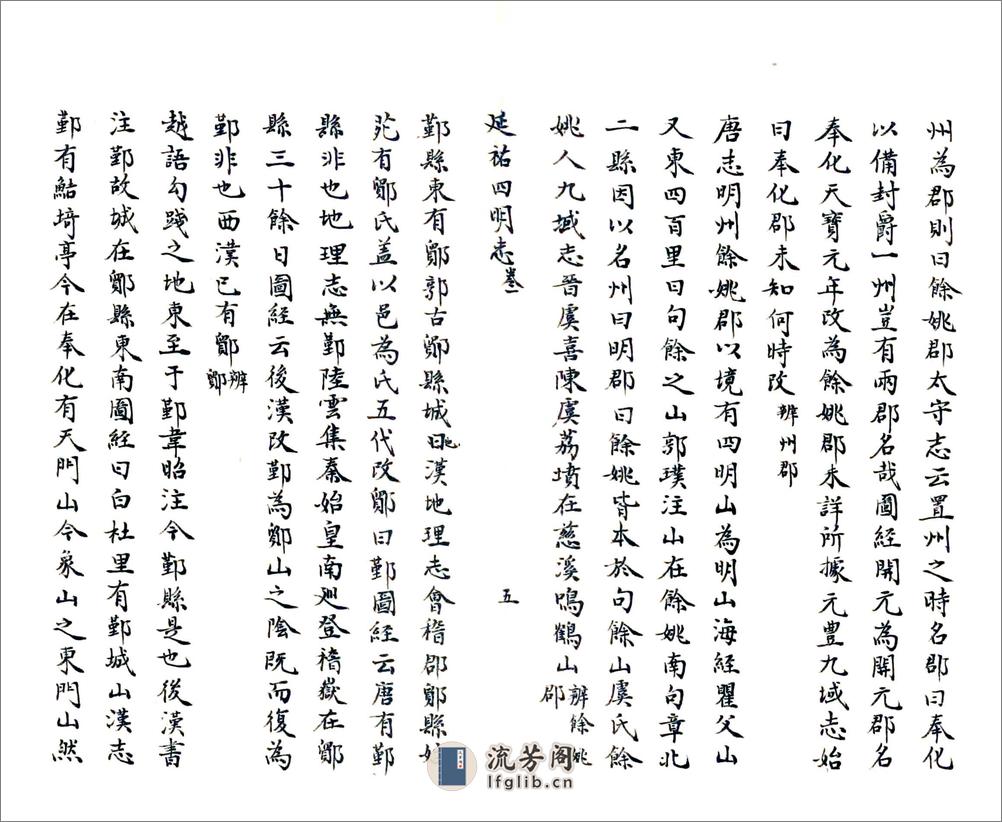 州為郡則曰餘姚郡太守志云置州之時名郡曰奉化
以備封爵一州豈有兩郡名哉圖經開元為開元郡名
奉化天寶元年改為餘姚郡未詳所據元豊九域志始
曰奉化郡未知何時改辨州郡
唐志明州餘姚郡以境有四明山為明山海經瞿父山
又東四百里曰句餘之山郭璞注山在餘姚南句章北
二縣因以名州曰明郡曰餘姚皆本於句餘山虞氏餘
姚人九域志晉虞喜陳虞荔墳在慈溪鳴鶴山辨餘姚郡
延祐四明志卷一 五
鄞縣東有鄮郭古鄮縣城也漢地理志會稽郡鄮縣姓
苑有鄮氏盖以邑為氏五代改鄮曰鄞圖經云唐有鄞
縣非也地理志無鄞陸雲集秦始皇南廵登稽嶽在鄮
縣三十餘日圖經云後漢改鄞為鄮山之陰既而復為
鄞非也西漢已有鄮辨鄮
越語勾踐之地東至于鄞韋昭注今鄞縣是也後漢書
注鄞故城在鄮縣東南圖經曰白杜里有鄞城山漢志
鄞有鮚埼亭今在奉化有天門山今象山之東門山然
流芳阁
lfglib.cn